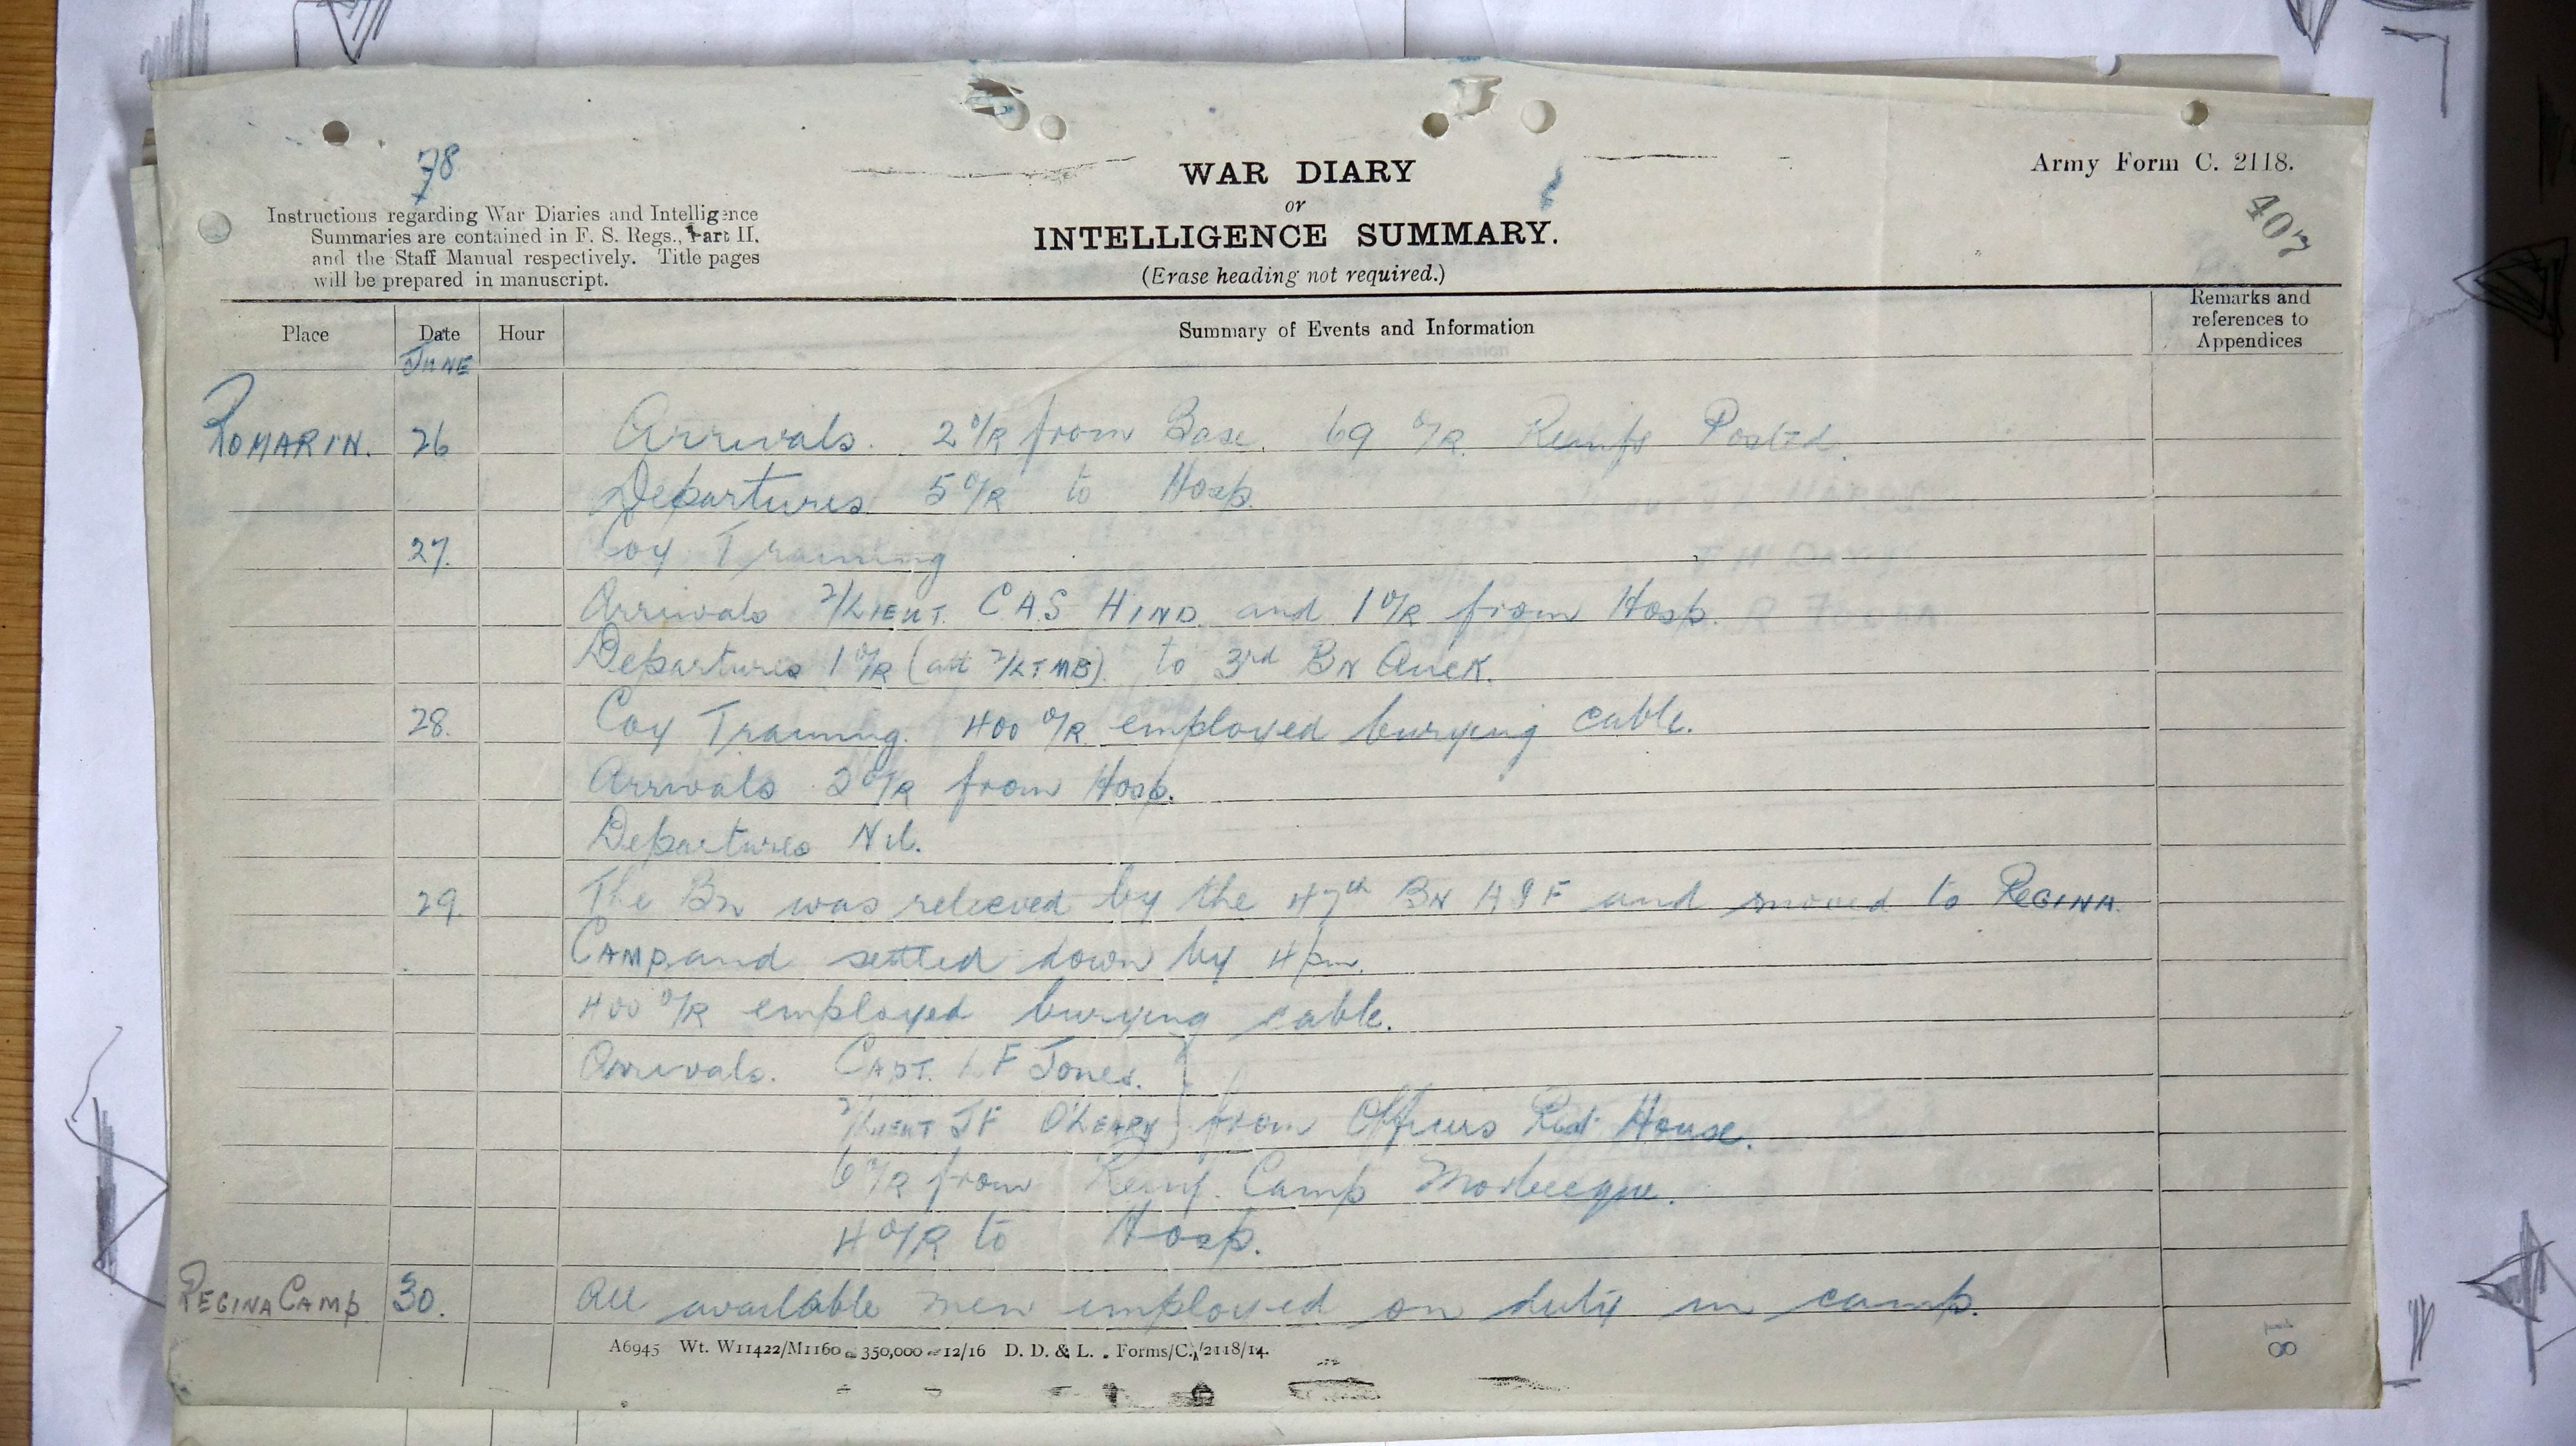 78
WAR DIARY
or
INTELLIGENCE SUMMARY.
(Erase heading not required.)
Army Form C. 2118.
407
Instructions regarding War Diaries and Intelligence
Summaries are contained in F. S. Regs., Part II.
and the Staff Manual respectively. Title pages
will be prepared in manuscript.
Place Date Hour Summary of Events and Information Remarks and references to Appendices
JUNE
ROMARIN. 26 Arrivals. 2 O/R from Base. 69 O/R. Reinfs Posted.
Departures 5 O/R to Hosp.
27. Coy Training
Arrivals 2/LIEUT. C A S HIND and 1 O/R from Hosp.
Departures 1 O/R (att 2/LTMB) to 3rd BN Auck.
28. Coy Training. 400 O/R employed burying cable.
Arrivals 2 O/R from Hosp.
Departures Nil.
29. The Bn was relieved by the 47th BN A I F and moved to REGINA
CAMP and settled down by 4 pm.
400 O/R employed burying cable.
Arrivals. CAPT. L F Jones.
2/LIEUT J F O'LEARY } from Officers Rest House.
6 O/R from Reinf. Camp Morbecque.
4 O/R to Hosp.
REGINA CAMP 30. All available men employed on duty in camp.
A6945 Wt. W11422/M1160 350,000 12/16 D. D. & L. Forms/C./2118/14.
18